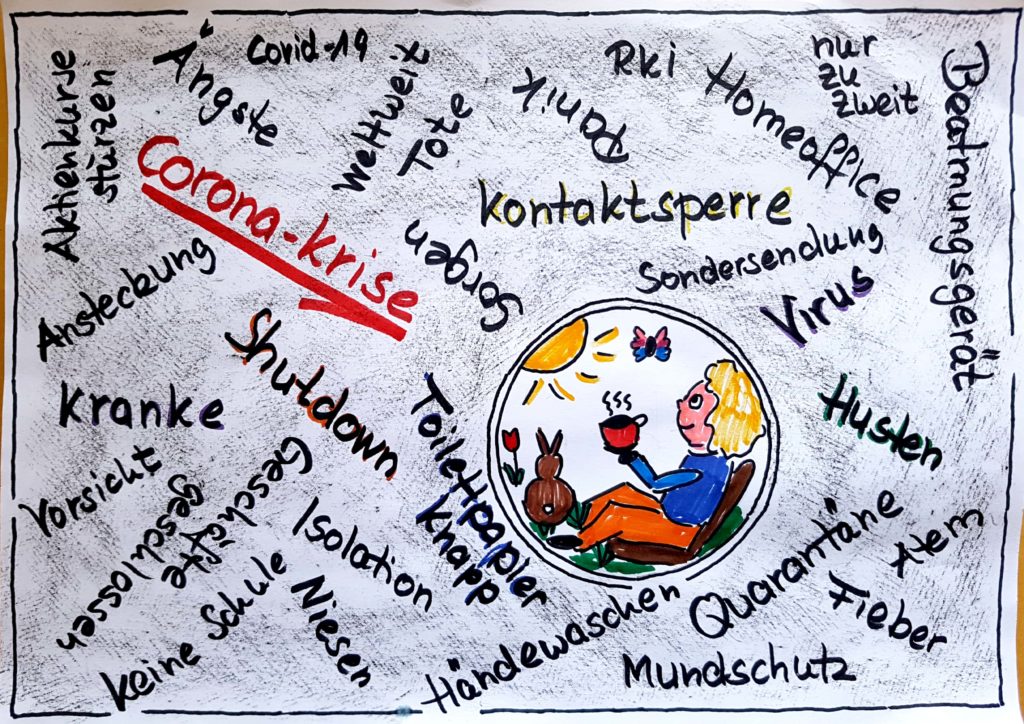 Aktienkurse
stürzen
Ängste
Covid-19
weltweit
Tote
Panik
Rki
Homeoffice
nur
zu
zweit
Beatmungsgerät
Corona-krise
kontaktsperre
Sorgen
Sondersendung
Virus
Ansteckung
Shutdown
Kranke
Toilettpapier
knapp
Husten
Vorsicht
Geschäfte
geschlossen
Isolation
Quarantäne
Atem
Fieber
keine Schule
Niesen
Händewaschen
Mundschutz